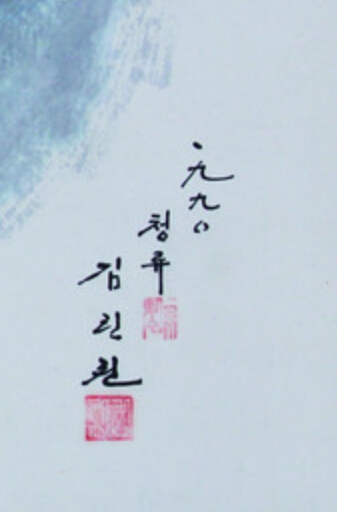 一九九〇
청류
김린권